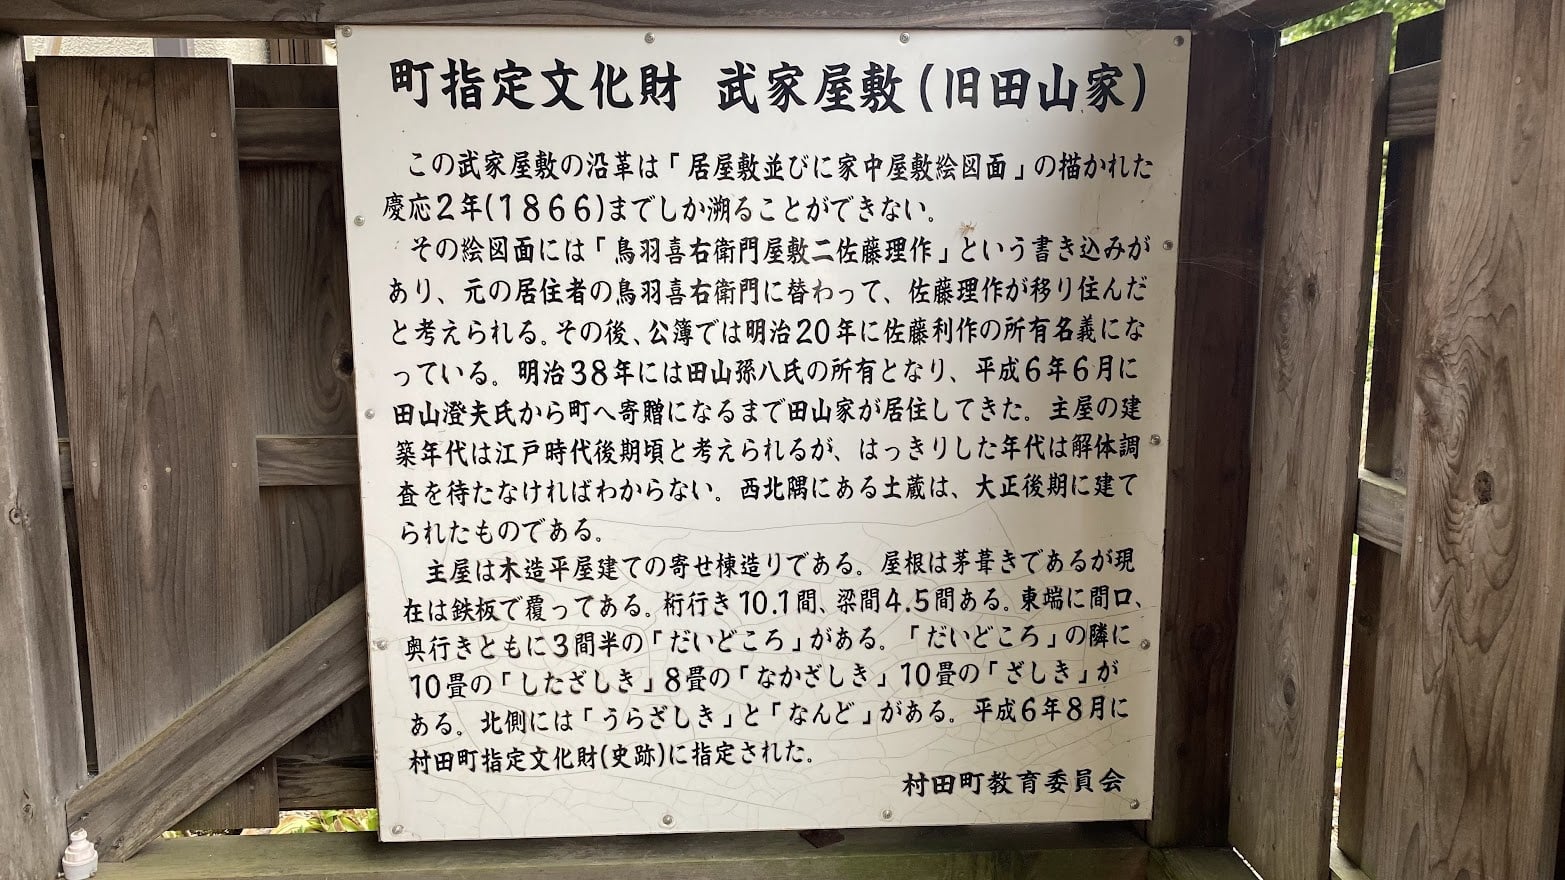 町指定文化財 武家屋敷(旧田山家)
この武家屋敷の沿革は「居屋敷並びに家中屋敷絵図面」の描かれた
慶応2年(1866)までしか溯ることができない。
その絵図面には「鳥羽喜右衛門屋敷二佐藤理作」という書き込みが
あり、元の居住者の鳥羽喜右衛門に替わって、佐藤理作が移り住んだ
と考えられる。その後、公簿では明治20年に佐藤利作の所有名義にな
っている。明治38年には田山孫八氏の所有となり、平成6年6月に
田山澄夫氏から町へ寄贈になるまで田山家が居住してきた。主屋の建
築年代は江戸時代後期頃と考えられるが、はっきりした年代は解体調
査を待たなければわからない。西北隅にある土蔵は、大正後期に建て
られたものである。
主屋は木造平屋建ての寄せ棟造りである。屋根は茅葺きであるが現
在は鉄板で覆ってある。桁行き10.1間、梁間4.5間ある。東端に間口、
奥行きともに3間半の「だいどころ」がある。「だいどころ」の隣に
10畳の「したざしき」8畳の「なかざしき」10畳の「ざしき」が
ある。北側には「うらざしき」と「なんど」がある。平成6年8月に
村田町指定文化財(史跡)に指定された。
村田町教育委員会